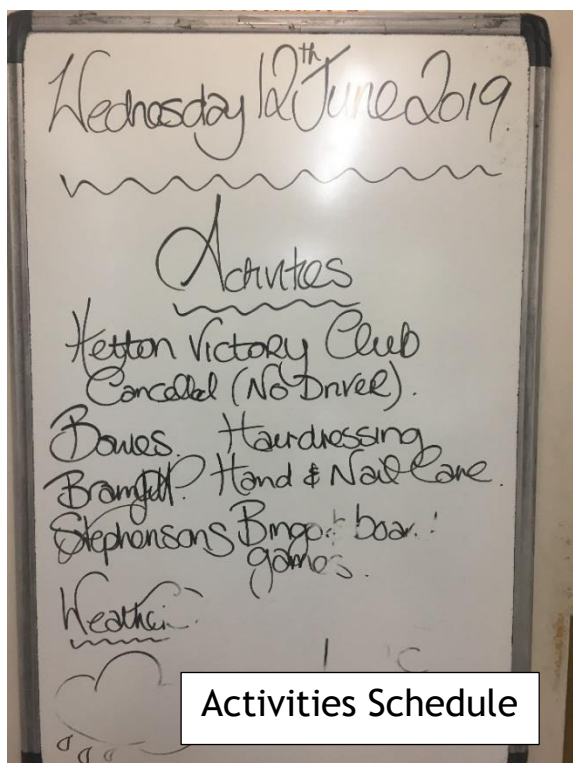 Wednesday 12th June 2019
Activities
Hetton Victory Club
Cancelled (No Driver).
Bowes. Hairdressing
Hand & Nail Care.
Stephensons Bingo & board
games.
Weather
Activities Schedule